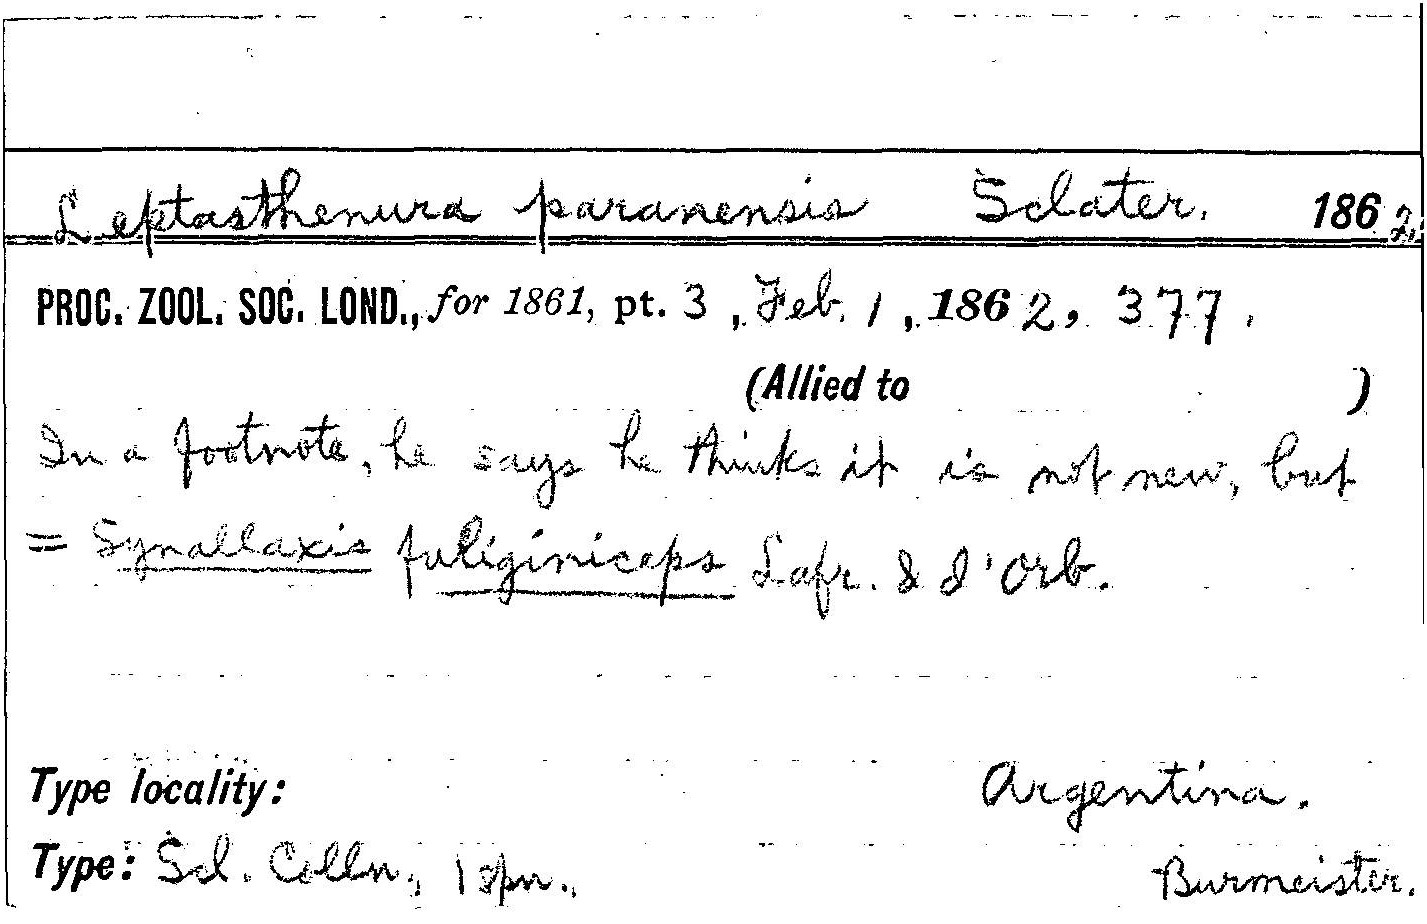 Leptasthenura paranensis Sclater. 1862.
PROC. ZOOL. SOC. LOND., for 1861, pt. 3, Feb. 1, 1862, 377.
(Allied to )
In a footnote, he says he thinks it is not new, but
= Synallaxis fuliginiceps Lafr. & d'Orb.
Type locality: Argentina.
Type: Scl. Colln., 1 spn., Burmeister.